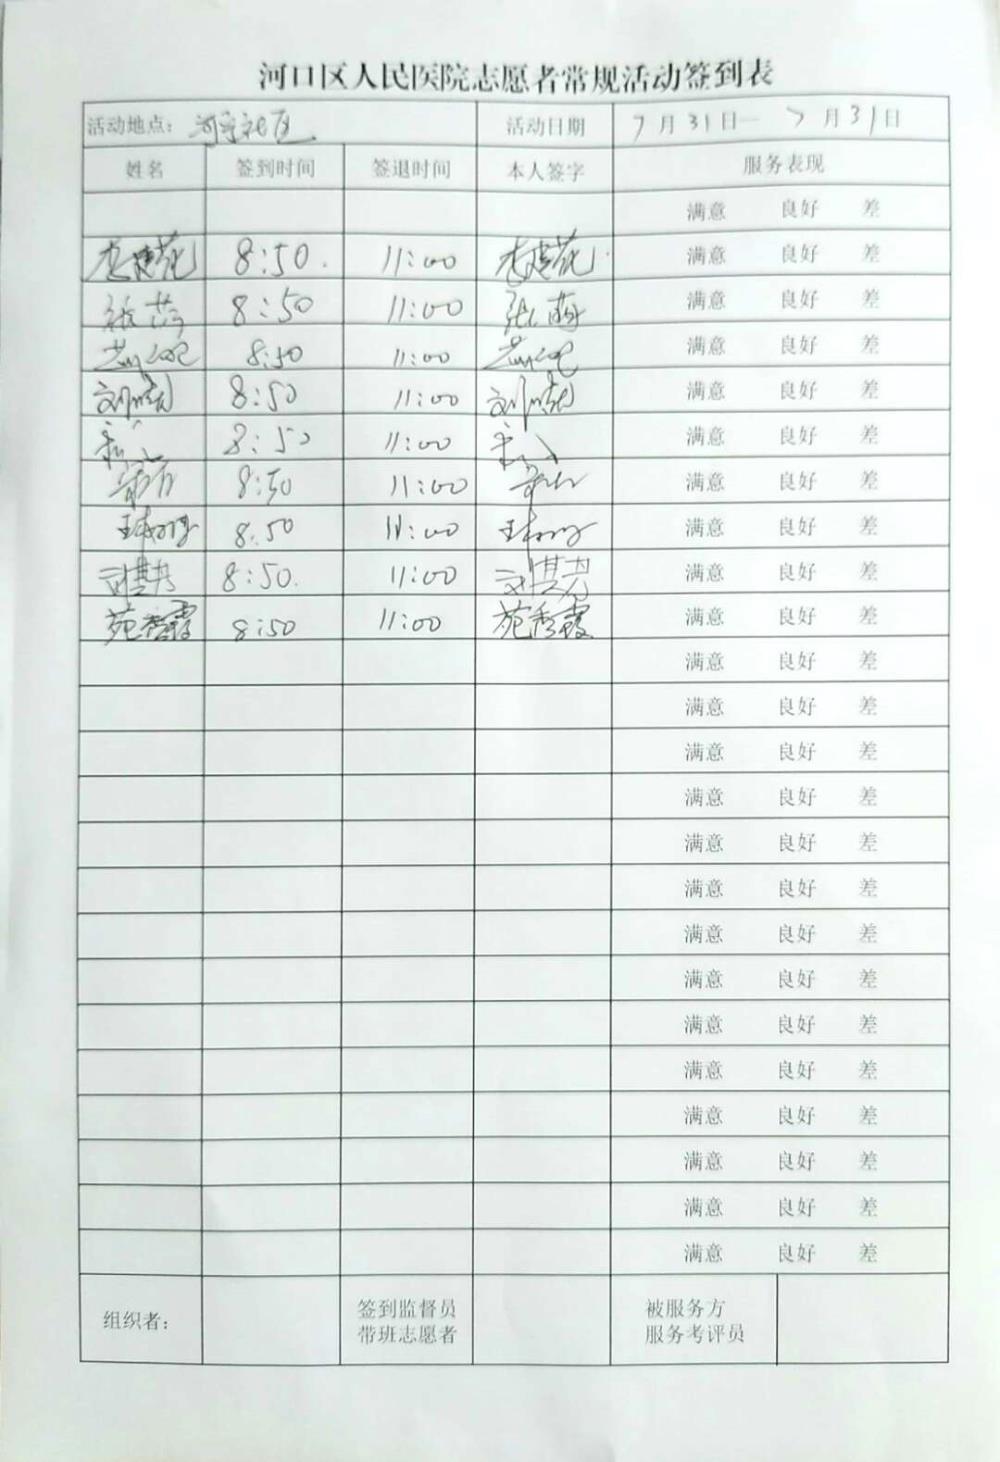 河口区人民医院志愿者常规活动签到表
活动地点： 社区 活动日期 7月31日—7月31日
姓名 签到时间 签退时间 本人签字 服务表现
满意 良好 差
8:50 11:00 满意 良好 差
8:50 11:00 满意 良好 差
8:50 11:00 满意 良好 差
刘晓 8:50 11:00 刘晓 满意 良好 差
8:50 11:00 满意 良好 差
8:50 11:00 满意 良好 差
8:50 11:00 满意 良好 差
8:50 11:00 满意 良好 差
苑秀霞 8:50 11:00 苑秀霞 满意 良好 差
满意 良好 差
满意 良好 差
满意 良好 差
满意 良好 差
满意 良好 差
满意 良好 差
满意 良好 差
满意 良好 差
满意 良好 差
满意 良好 差
满意 良好 差
满意 良好 差
满意 良好 差
满意 良好 差
组织者： 签到监督员 被服务方
带班志愿者 服务考评员